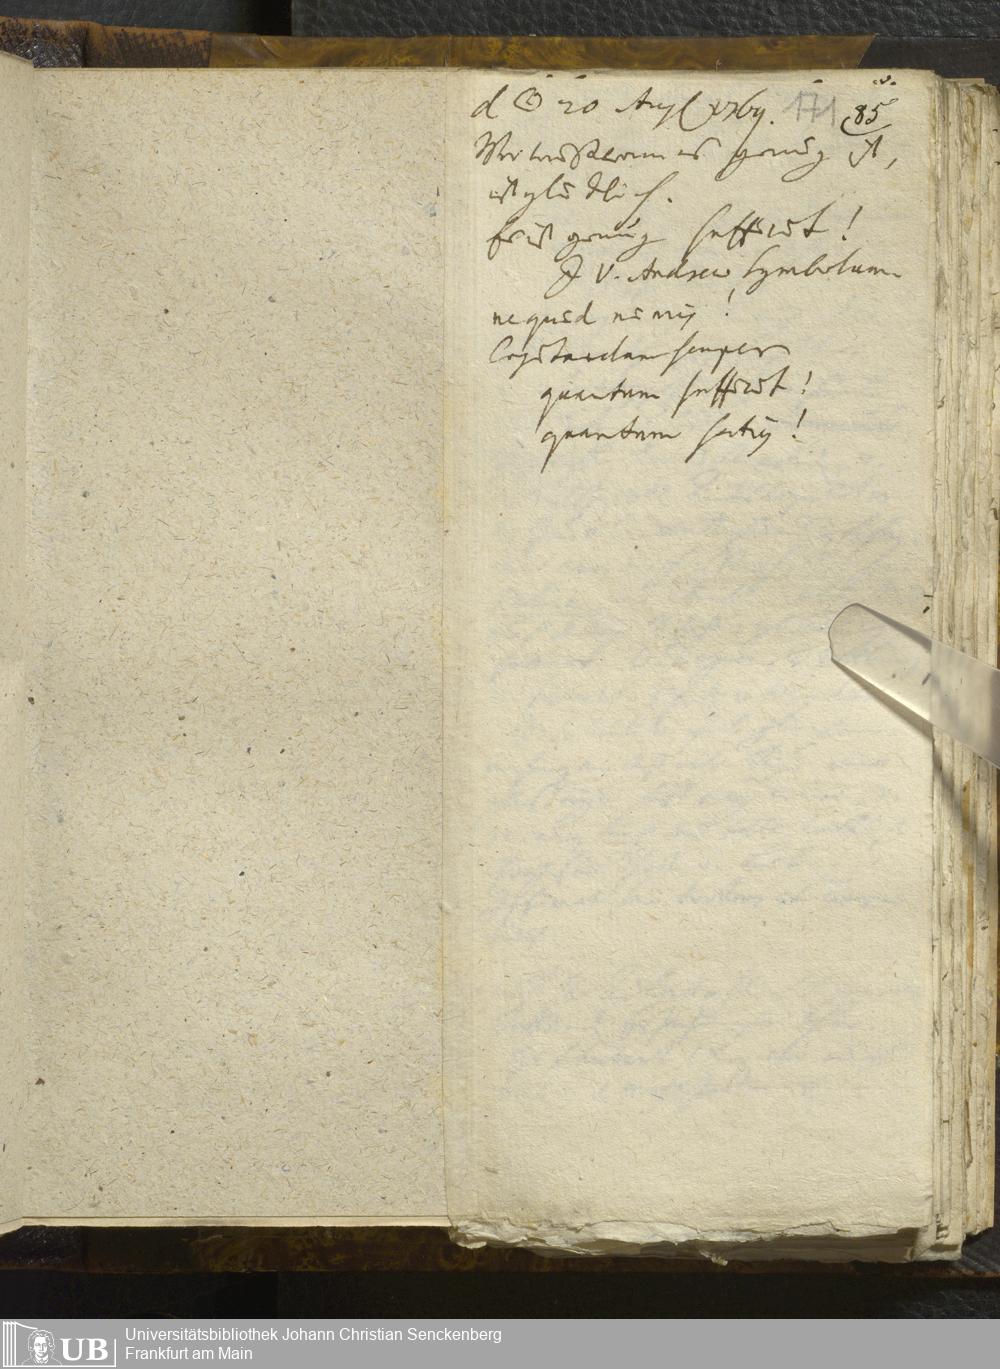 d ☉ 20 Aug 1769. 171 85
Wer weis wann es genug ist,
ist glücklich.
Es ist genug sufficit!
J. V. Andreae Symbolum
ne quid nimis!
Cogitandum semper
quantum sufficit!
quantum satis!
UB Universitätsbibliothek Johann Christian Senckenberg
Frankfurt am Main